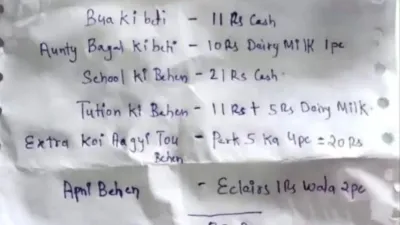 Bua ki beti - 11 Rs Cash
Aunty Bagal ki beti - 10Rs Dairy Milk 1pc
School ki Behen - 21 Rs Cash.
Tution ki Behen - 11Rs + 5Rs Dairy Milk.
Extra Koi Aagyi Tou Behen - Perk 5 ka 4pc = 20Rs
Apni Behen - Eclairs 1Rs wala 2pc